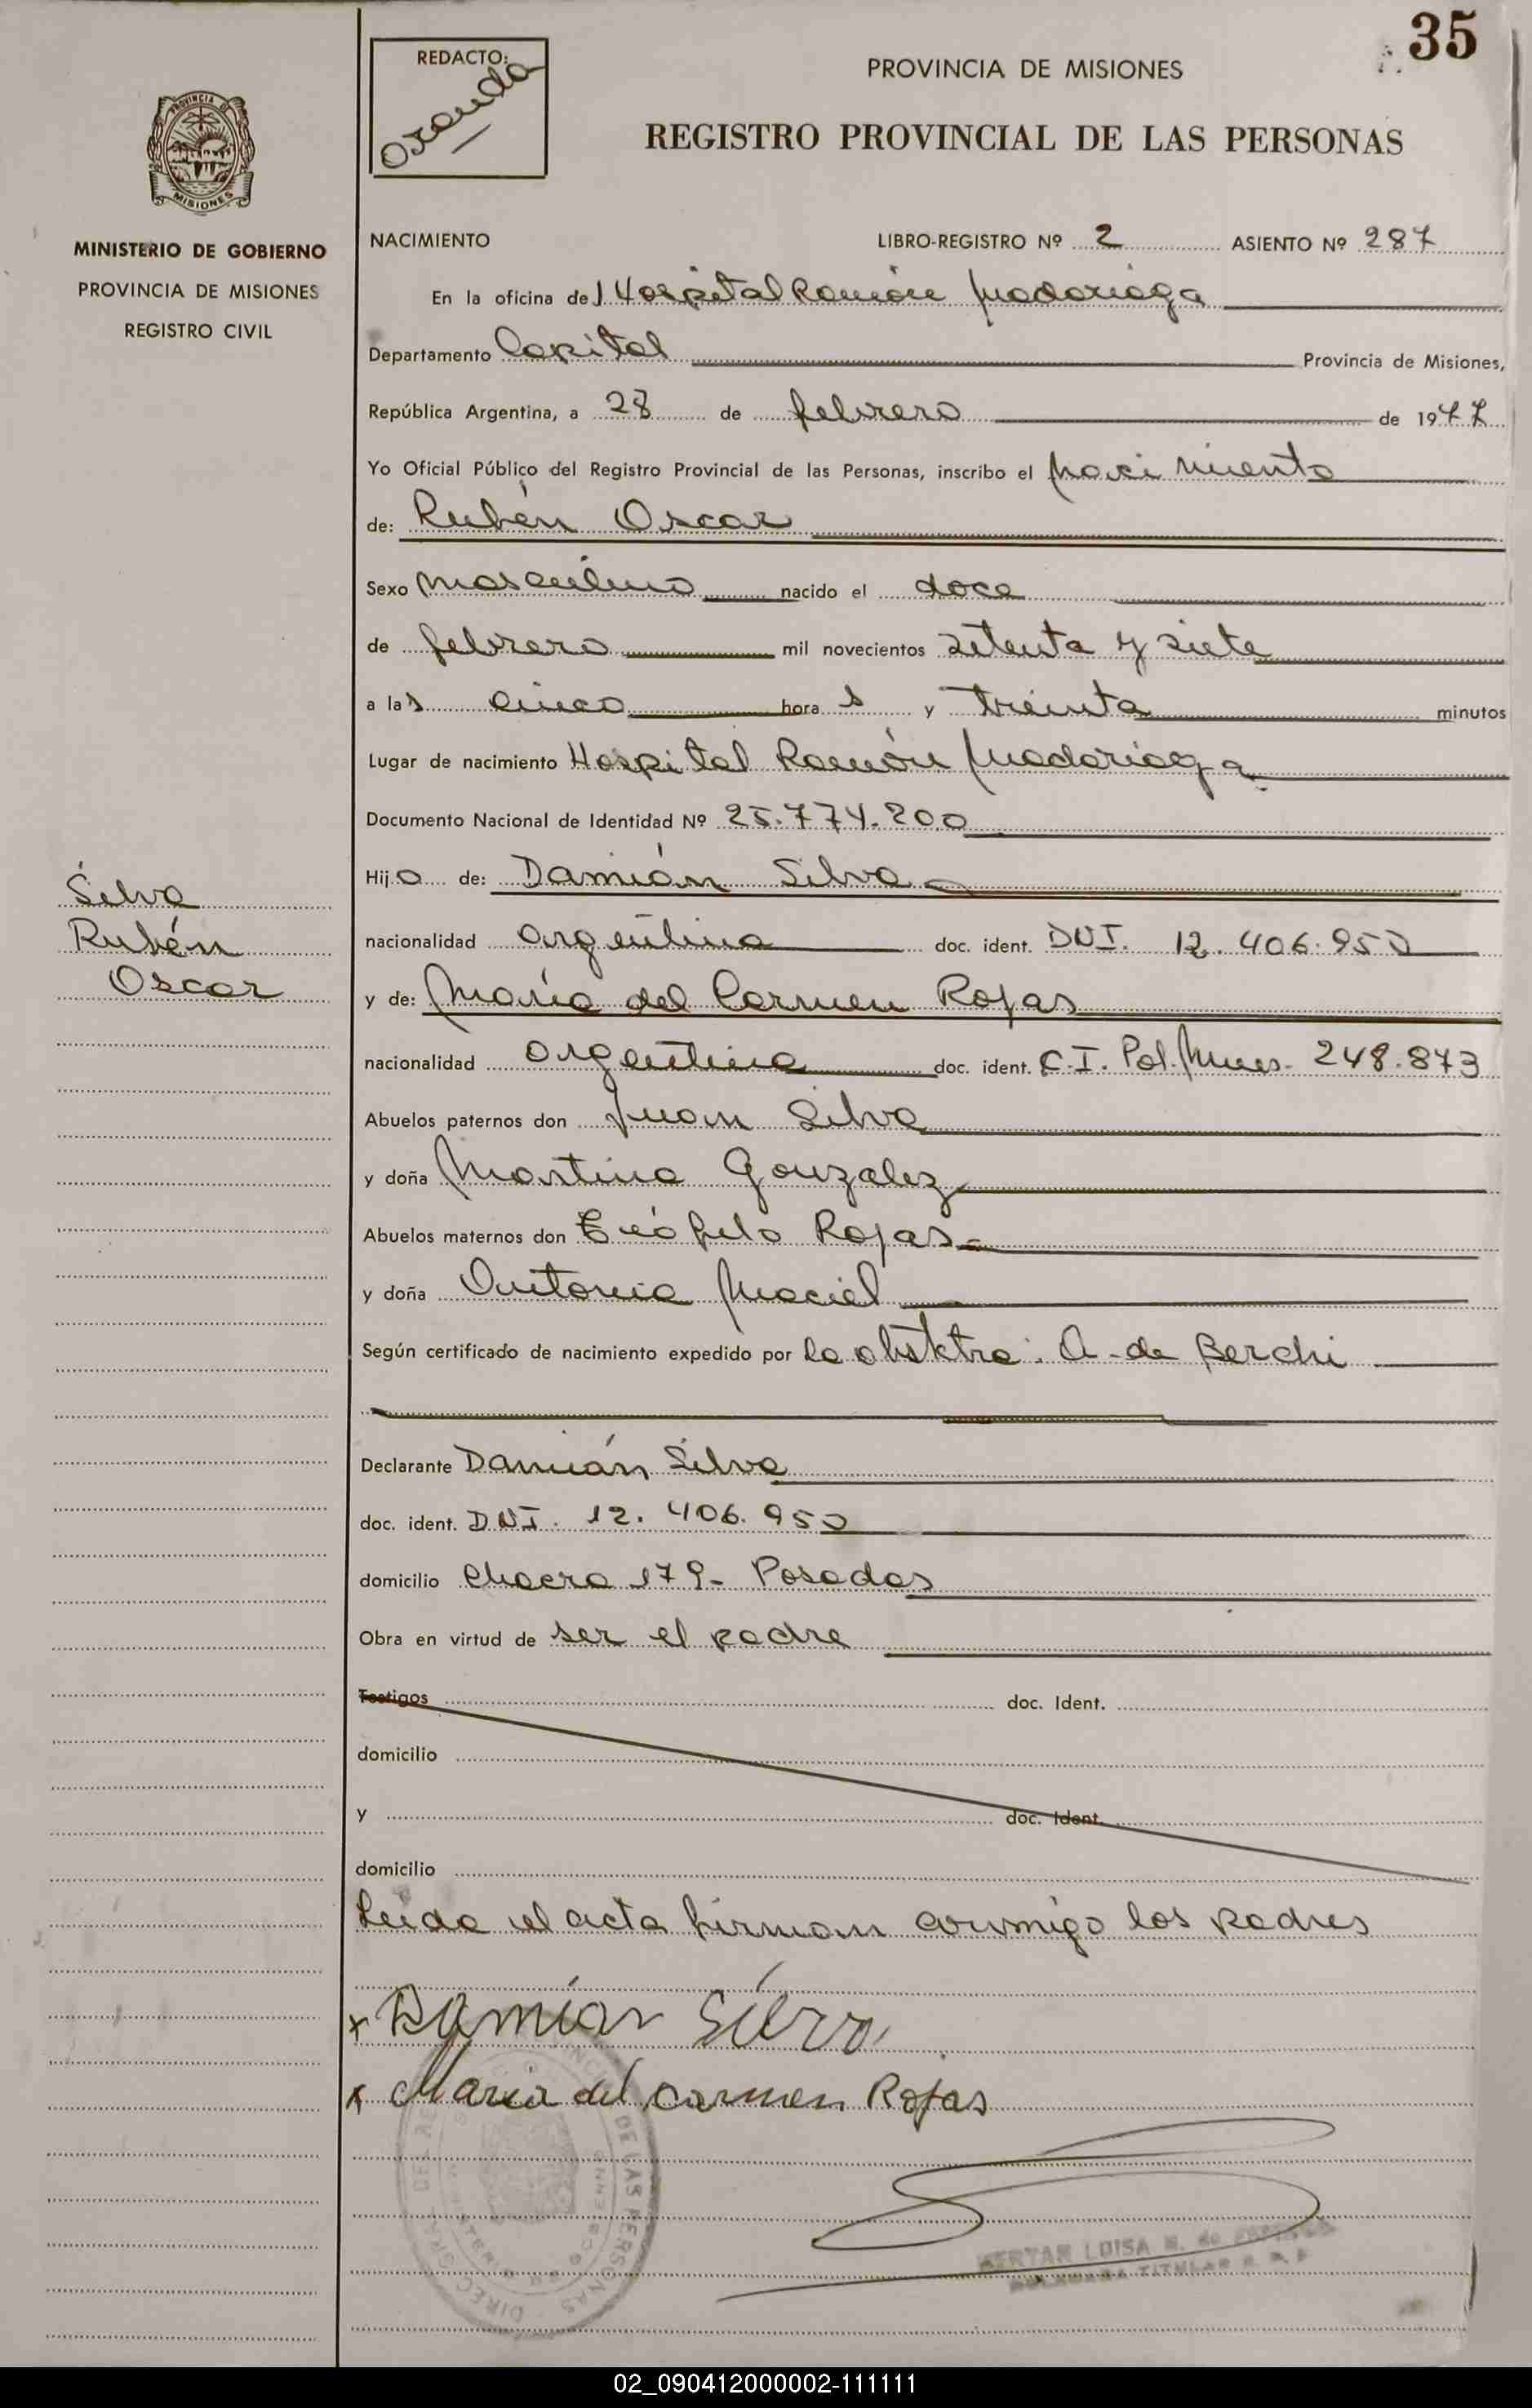 35
REDACTO:
PROVINCIA DE MISIONES
REGISTRO PROVINCIAL DE LAS PERSONAS
PROVINCIA DE
MISIONES
MINISTERIO DE GOBIERNO
PROVINCIA DE MISIONES
REGISTRO CIVIL
NACIMIENTO LIBRO-REGISTRO Nº 2 ASIENTO Nº 287
En la oficina del Hospital Ramón Madariaga
Departamento Capital Provincia de Misiones,
República Argentina, a 28 de febrero de 1977
Yo Oficial Público del Registro Provincial de las Personas, inscribo el nacimiento
de: Rubén Oscar
Sexo masculino nacido el doce
de febrero mil novecientos setenta y siete
a las cinco horas y treinta minutos
Lugar de nacimiento Hospital Ramón Madariaga
Documento Nacional de Identidad Nº 25.774.200
Hijo de: Damián Silva
nacionalidad argentina doc. ident. DNI. 12.406.950
y de: María del Carmen Rojas
nacionalidad argentina doc. ident. C.I. Pol. Mnes. 248.873
Abuelos paternos don Juan Silva
y doña Martina Gonzalez
Abuelos maternos don Teófilo Rojas
y doña Antonia Maciel
Según certificado de nacimiento expedido por la obstetra: A. de Berchi
Declarante Damián Silva
doc. ident. DNI. 12.406.950
domicilio Chacra 179- Posadas
Obra en virtud de ser el padre
Testigos doc. Ident.
domicilio
y doc. Ident.
domicilio
Leída el acta firman conmigo los padres
x Damián Silva
x María del Carmen Rojas
Silva
Rubén
Oscar
DE LAS PERSONAS
LUISA
TITULAR
02_090412000002-111111